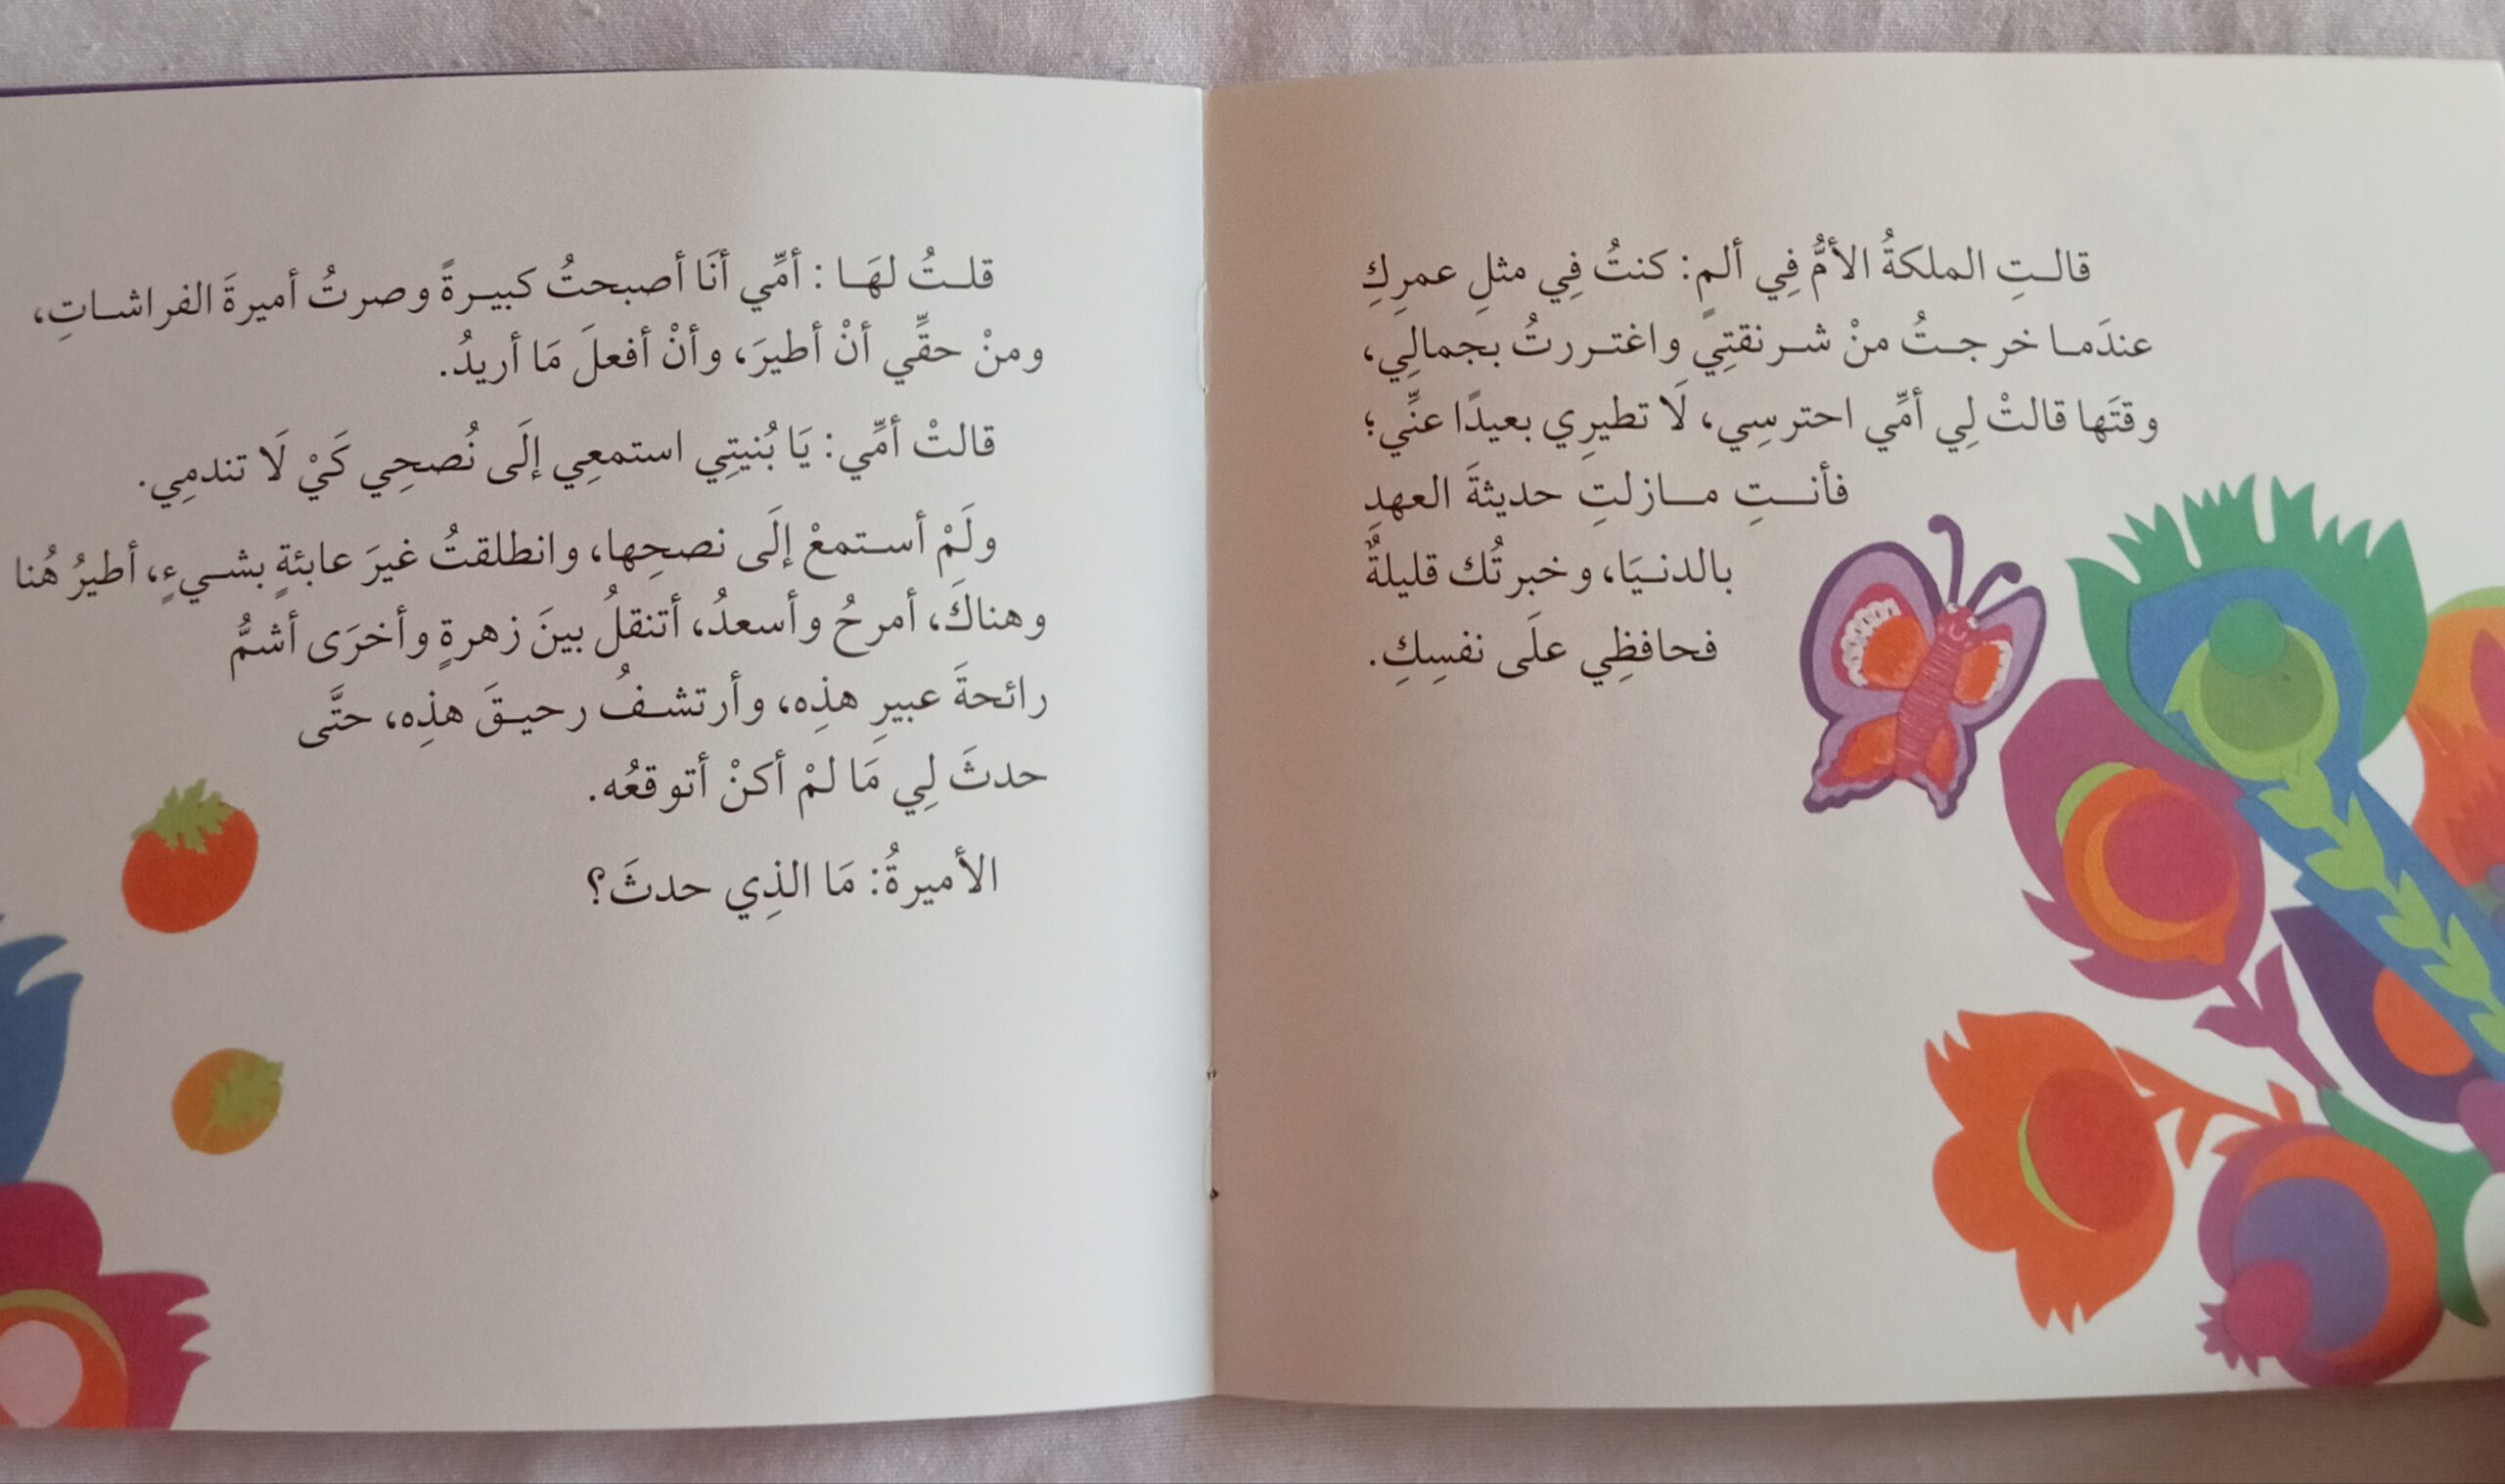 قالتِ الملكةُ الأمُّ فِي ألمٍ: كنتُ فِي مثلِ عمرِكِ
عندَما خرجتُ منْ شرنقتِي واغتررتُ بجمالِي،
وقتَها قالتْ لِي أمِّي احترسِي، لَا تطيرِي بعيدًا عنِّي؛
فأنتِ مازلتِ حديثةَ العهدِ
بالدنيَا، وخبرتُك قليلةٌ
فحافظِي علَى نفسِكِ.
قلتُ لهَا: أمِّي أنَا أصبحتُ كبيرةً وصرتُ أميرةَ الفراشاتِ،
ومنْ حقِّي أنْ أطيرَ، وأنْ أفعلَ مَا أريدُ.
قالتْ أمِّي: يَا بُنيتِي استمعِي إلَى نُصحِي كَيْ لَا تندمِي.
ولَمْ أستمعْ إلَى نصحِها، وانطلقتُ غيرَ عابئةٍ بشيءٍ، أطيرُ هُنا
وهناكَ، أمرحُ وأسعدُ، أتنقلُ بينَ زهرةٍ وأخرَى أشمُّ
رائحةَ عبيرِ هذِه، وأرتشفُ رحيقَ هذِه، حتَّى
حدثَ لِي مَا لمْ أكنْ أتوقعُه.
الأميرةُ: مَا الذِي حدثَ؟